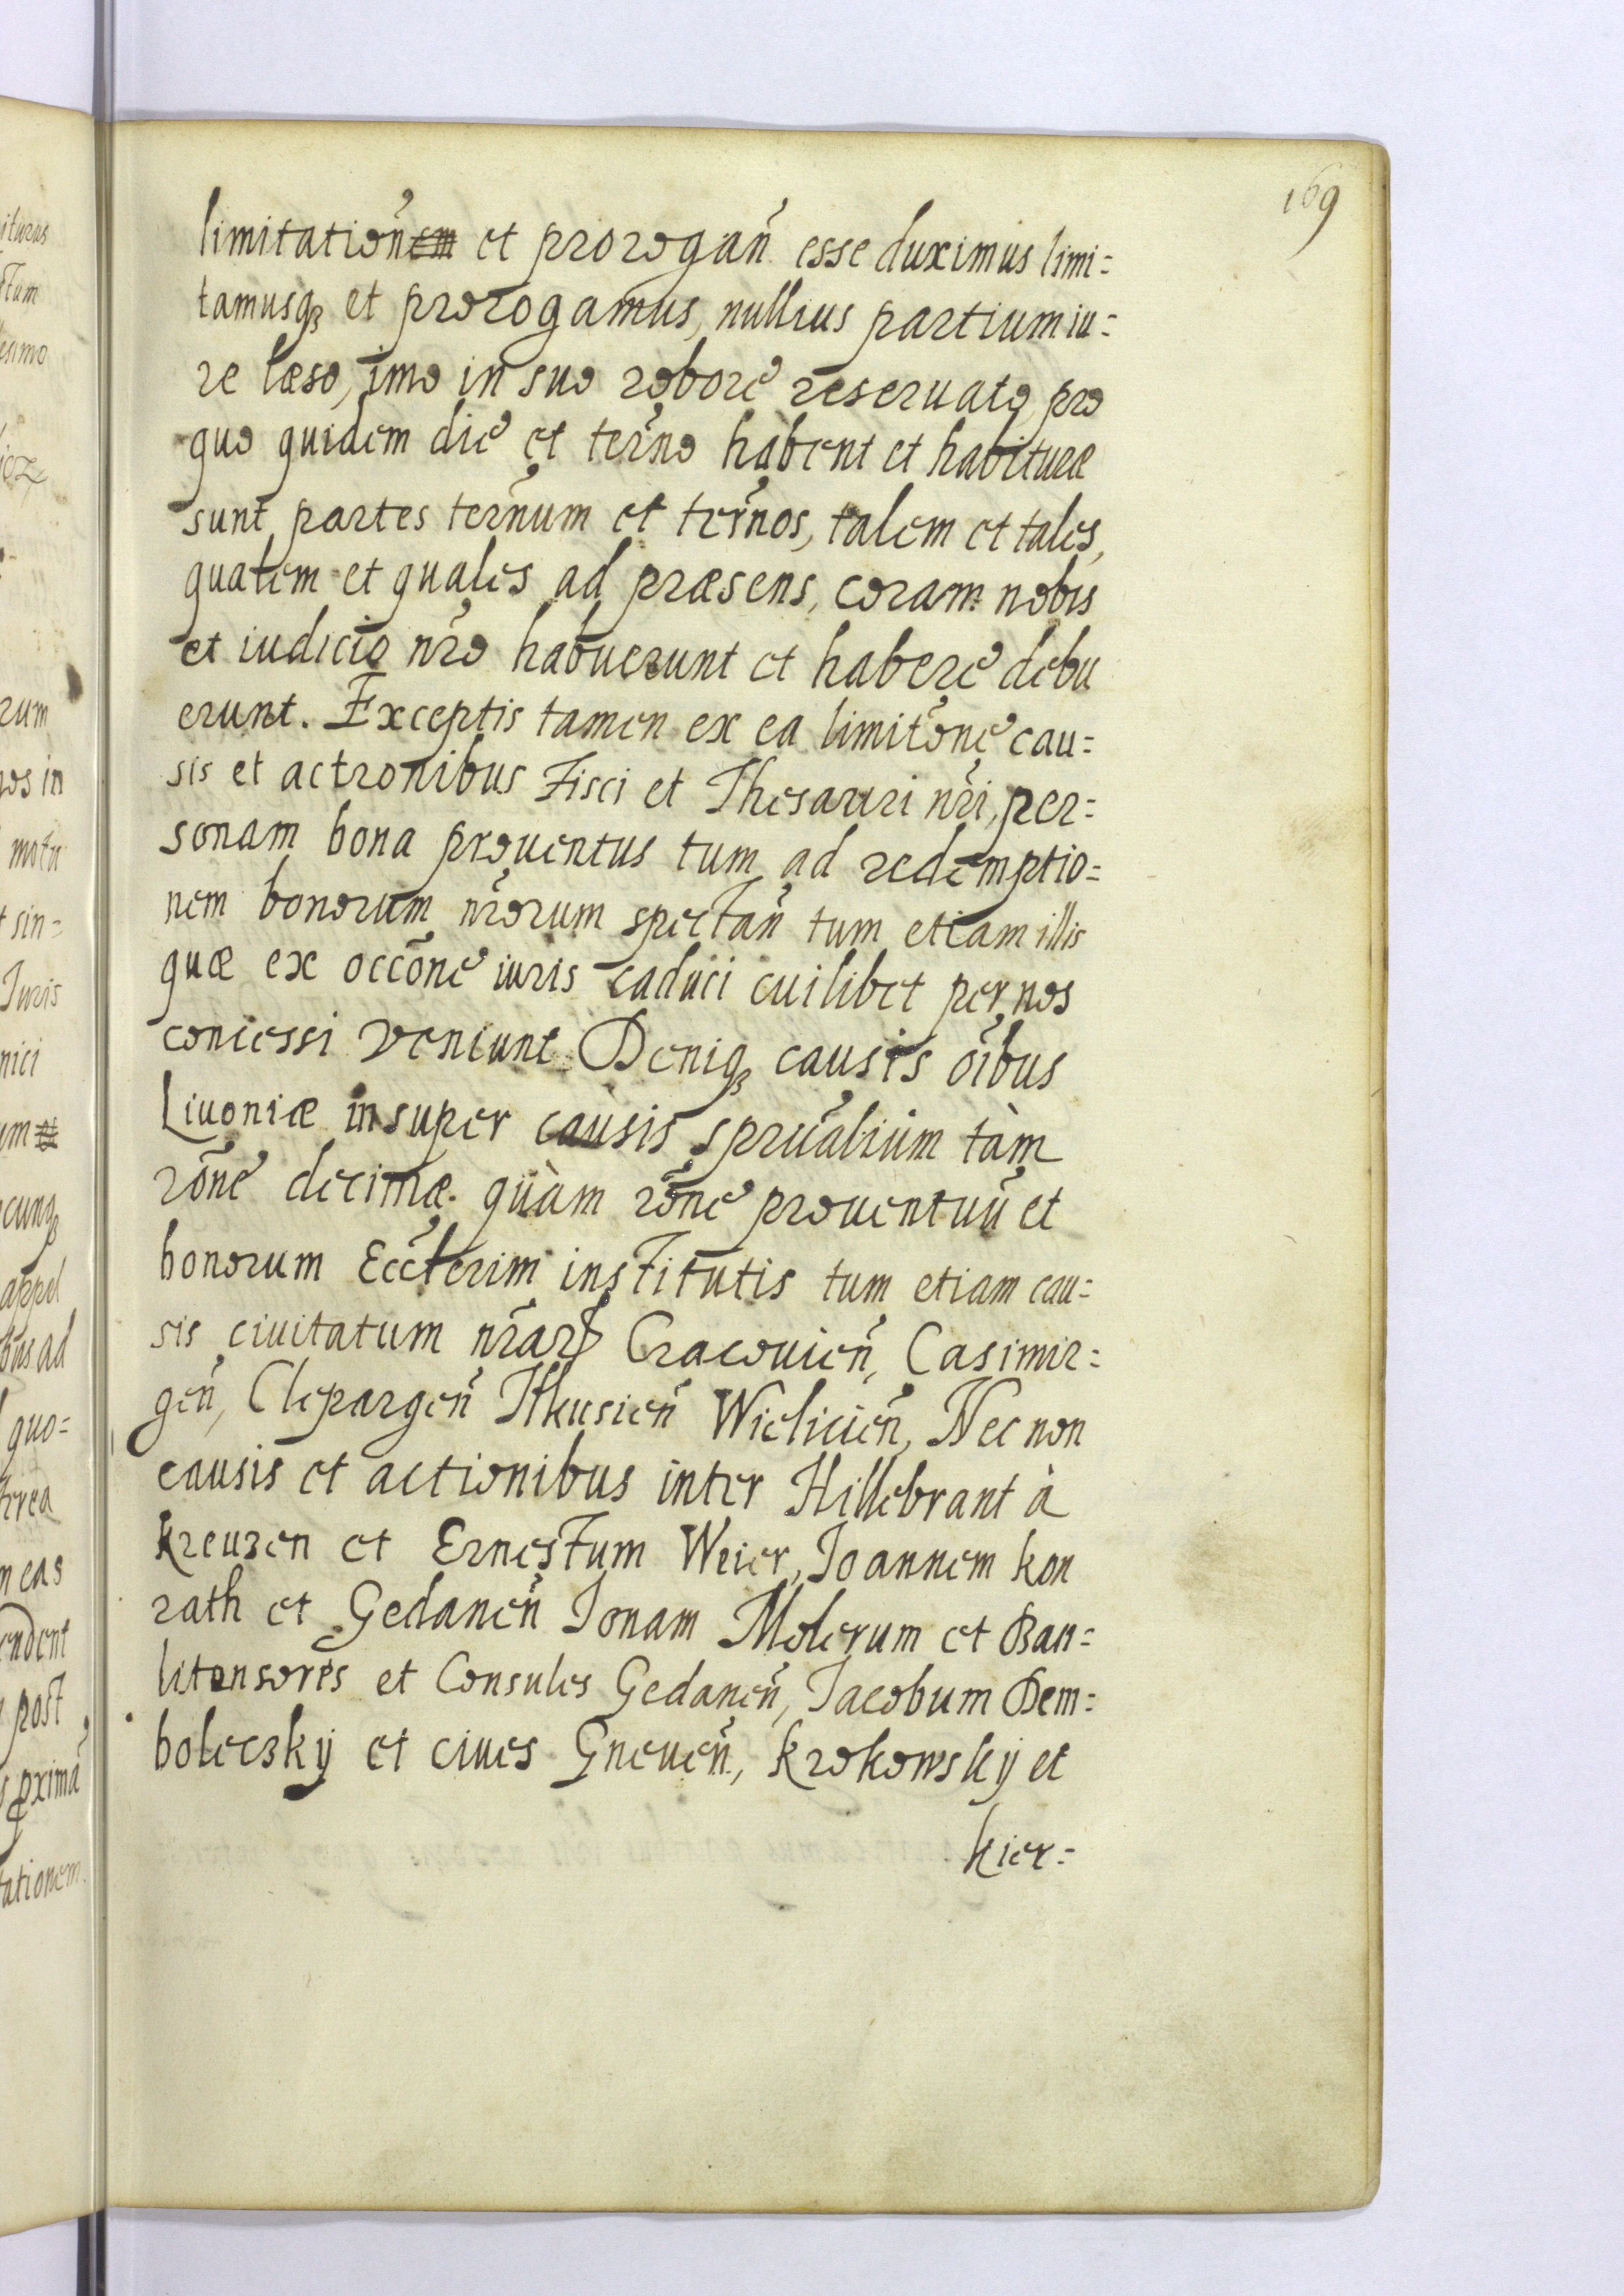 169
limitatioñem et prorogañ esse duximus limi=
tamusqꝫ et prorogamus, nullius partium iu=
re læso, imo in suo robore reseruato, pro
quo quidem die et ter̃no habent et habituræ
sunt partes ter̃num et ter̃nos, talem et tales,
qualem et quales ad præsens, coram nobis
et iudicio nr̃o habuerunt et habere debu
erunt. Exceptis tamen ex ea limitõne cau=
sis et actionibus Fisci et Thesauri nr̃i, per=
sonam bona prouentus tum ad redemptio=
nem bonorum nr̃orum spectañ tum etiam illis
quæ ex occõne iuris caduci cuilibet per nos
concessi veniunt Deniqꝫ causis oĩbus
Liuoniæ insuper causis spr̃ualium tàm
rõne decimæ quàm rõne prouentuũ et
bonorum Eccl̃erim institutis tum etiam cau=
sis ciuitatum nr̃arꝝ Cracouieñ, Casimir=
geñ, Clepargeñ Ilkusieñ Wielicieñ, Nec non
causis et actionibus inter Hillebrant à
Kreuzen et Ernestum Weier, Joannem Kon
rath et Gedaneñ Jonam Molerum et Ban=
litonsores et Consules Gedaneñ, Jacobum Dem=
boleczkÿ et ciues Gneueñ, Krokowskÿ et
Kier=